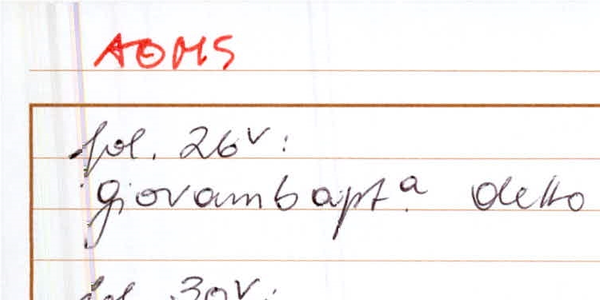 AOMS
fol. 26v:
giovambapt.a detto
fol. 30v: